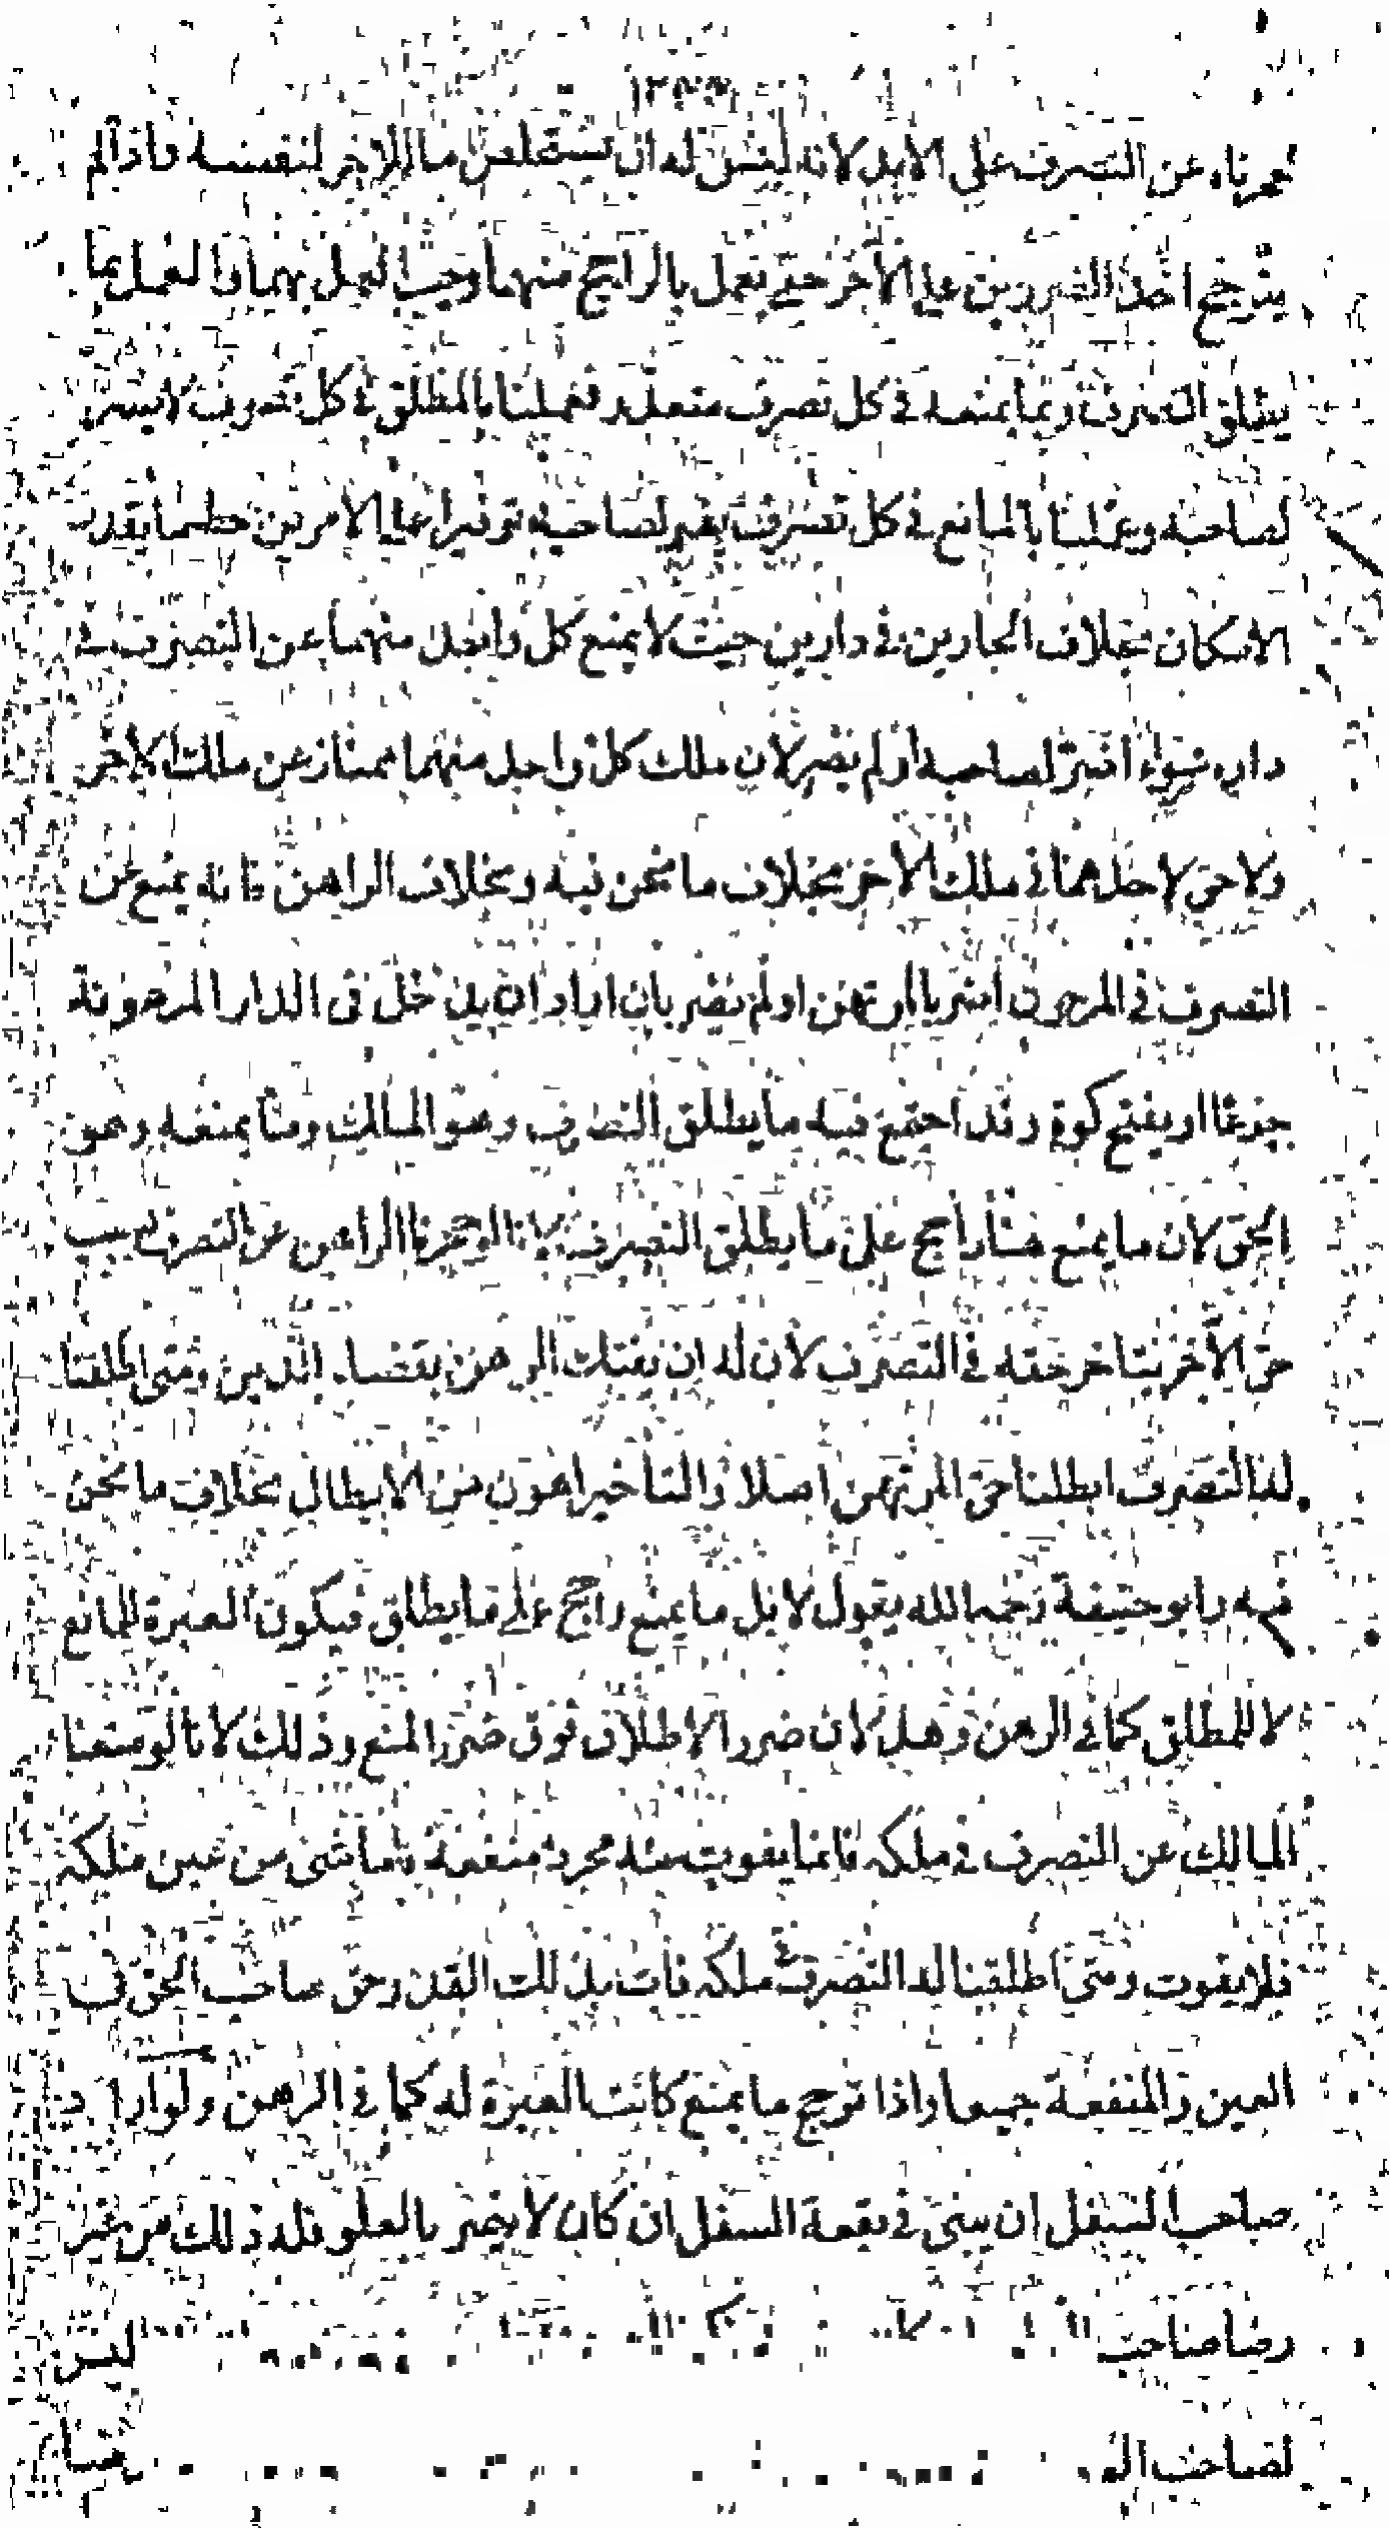 حجرناه عن التصرف على الابد لانه ليس له ان يستخلص مال الاخر لنفسه فاذا لم
يترجح احد الضررين على الاخر حتى نعمل بالراجح منهما وجب العمل بهما والعمل بما
يطلق التصرف وبما يمنعه في كل تصرف متعذر فعملنا بالمطلق في كل تصرف لا يضر
لصاحبه وعملنا بالمانع في كل تصرف يضر لصاحبه توفيرا على الامرين حظهما بقدر
الامكان بخلاف الجارين في دارين حيث لا يمنع كل واحد منهما عن التصرف في
داره سواء اضر لصاحبه او لم يضر لان ملك كل واحد منهما ممتاز عن ملك الاخر
ولا حق لاحدهما في ملك الاخر بخلاف ما نحن فيه وبخلاف الراهن فانه يمنع عن
التصرف في المرهون اضر بالمرتهن او لم يضر بان اراد ان يدخل في الدار المرهونة
جزعا او يفتح كوة وقد اجتمع فيه ما يطلق التصرف وهو المالك وما يمنعه وهو
الحق لان ما يمنع هنا راجح على ما يطلق التصرف لانا لو حجرنا الراهن عن التصرف بسبب
حق الاخر يتاخر حقه في التصرف لان له ان يفتك الرهن بقضاء الدين ومتى اطلقنا
له التصرف ابطلنا حق المرتهن اصلا والتاخير اهون من الابطال بخلاف ما نحن
فيه وابو حنيفة رحمه الله يقول لا بل ما يمنع راجح على ما يطلق فيكون العبرة للمانع
لا للمطلق كما في الرهن وهذا لان ضرر الاطلاق فوق ضرر المنع وذلك لانا لو منعنا
المالك عن التصرف في ملكه فانما يفوت منه مجرد منفعة فاما شئ من عين ملكه
فلا يفوت ومتى اطلقنا له التصرف في ملكه فات بذلك القدر حق صاحب الحق في
العين والمنفعة جميعا واذا ترجح ما يمنع كانت العبرة له كما في الرهن ولو اراد
صاحب السفل ان يبنى في بقعة السفل ان كان لا يضر بالعلو فله ذلك من غير
رضا صاحب ليس
لصاحب